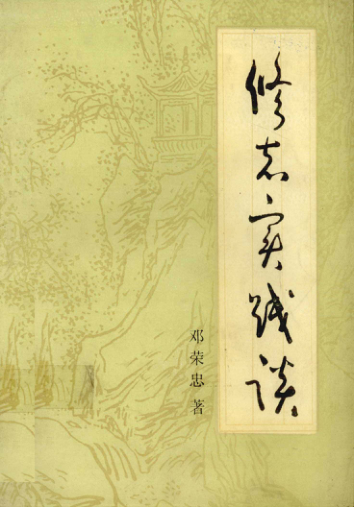 修志实践谈
邓荣忠 著